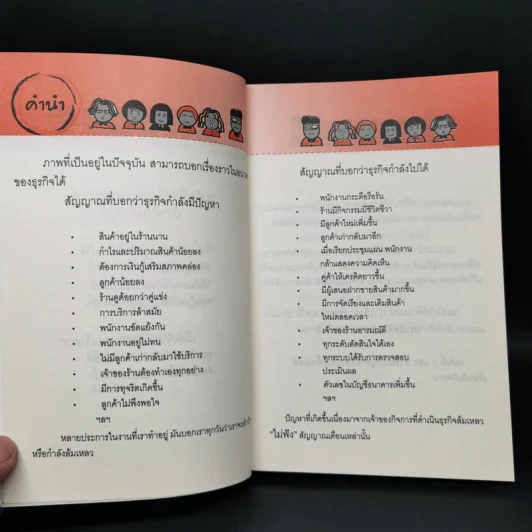 คำนำ
ภาพที่เป็นอยู่ในปัจจุบัน สามารถบอกเรื่องราวในอนาคต
ของธุรกิจได้
สัญญาณที่บอกว่าธุรกิจกำลังมีปัญหา
• สินค้าอยู่ในร้านนาน
• กำไรและปริมาณสินค้าน้อยลง
• ต้องการเงินกู้เสริมสภาพคล่อง
• ลูกค้าน้อยลง
• ร้านดูด้อยกว่าคู่แข่ง
• การบริการล้าสมัย
• พนักงานขัดแย้งกัน
• พนักงานอยู่ไม่ทน
• ไม่มีลูกค้าเก่ากลับมาใช้บริการ
• เจ้าของร้านต้องทำเองทุกอย่าง
• มีการทุจริตเกิดขึ้น
• ลูกค้าไม่พึงพอใจ
ฯลฯ
หลายประการในงานที่เราทำอยู่ มันบอกเราทุกวันว่าเราจะสำเร็จ
หรือกำลังล้มเหลว
สัญญาณที่บอกว่าธุรกิจกำลังไปได้
• พนักงานกระตือรือร้น
• ร้านมีกิจกรรมมีชีวิตชีวา
• มีลูกค้าใหม่เพิ่มขึ้น
• ลูกค้าเก่ากลับมาอีก
• เมื่อเรียกประชุมแผน พนักงาน
กล้าแสดงความคิดเห็น
• คู่ค้าให้เครดิตยาวขึ้น
• มีผู้เสนอฝากขายสินค้ามากขึ้น
• มีการจัดเรียงและเติมสินค้า
ใหม่ตลอดเวลา
• เจ้าของร้านอารมณ์ดี
• ทุกระดับตัดสินใจได้เอง
• ทุกระบบได้รับการตรวจสอบ
ประเมินผล
• ตัวเลขในบัญชีธนาคารเพิ่มขึ้น
ฯลฯ
ปัญหาที่เกิดขึ้นเนื่องมาจากเจ้าของกิจการที่ดำเนินธุรกิจล้มเหลว
"ไม่ฟัง" สัญญาณเตือนเหล่านั้น